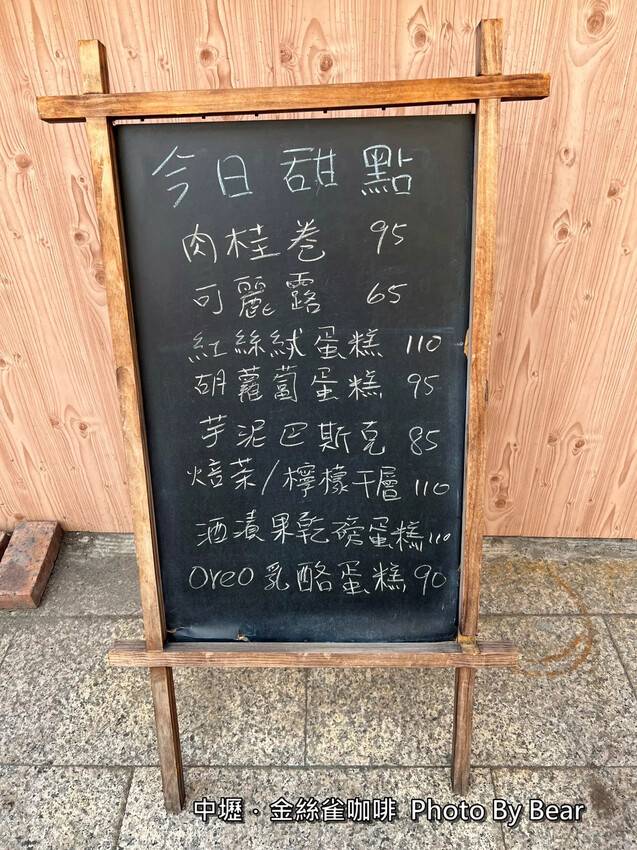 今日甜點
肉桂卷 95
可麗露 65
紅絲絨蛋糕 110
胡蘿蔔蛋糕 95
芋泥巴斯克 85
焙茶/檸檬千層 110
酒漬果乾磅蛋糕 110
Oreo 乳酪蛋糕 90
中壢．金絲雀咖啡 Photo By Bear